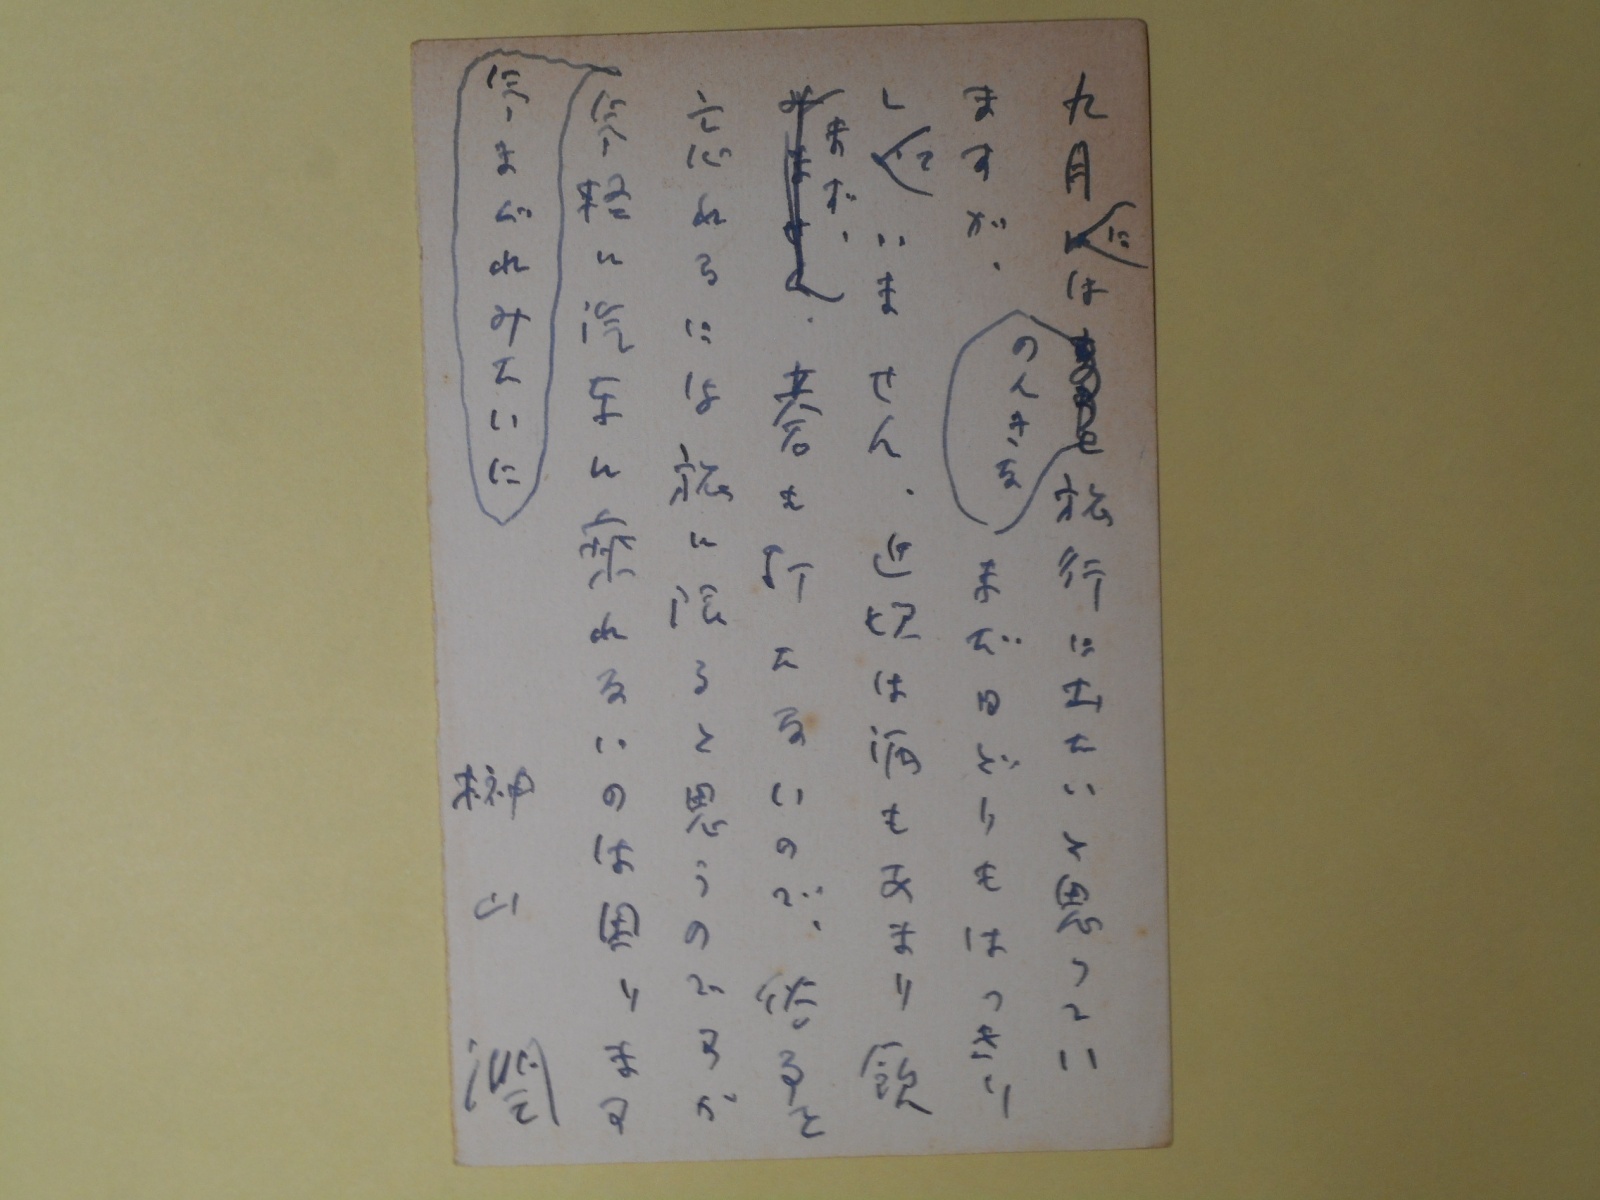 九月には旅行に出たいと思ってい
のんきな
ますが、まだ日どりもはっきり
していません、近頃は酒もあまり飲
まず、碁も打たないので、
忘れるには旅に限ると思うのですが
気軽に汽車に乗れないのは困ります
気まぐれみたいに
榊山潤